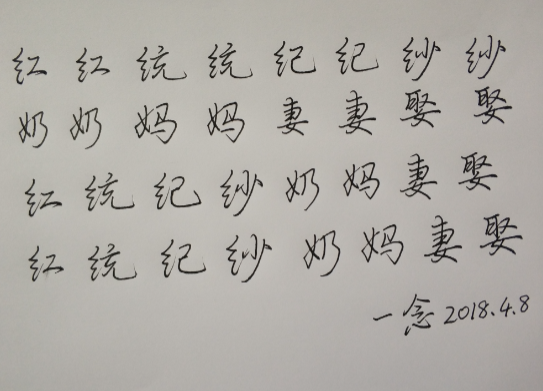 红 红 统 统 纪 纪 纱 纱
奶 奶 妈 妈 妻 妻 娶 娶
红 统 纪 纱 奶 妈 妻 娶
红 统 纪 纱 奶 妈 妻 娶
一念 2018.4.8